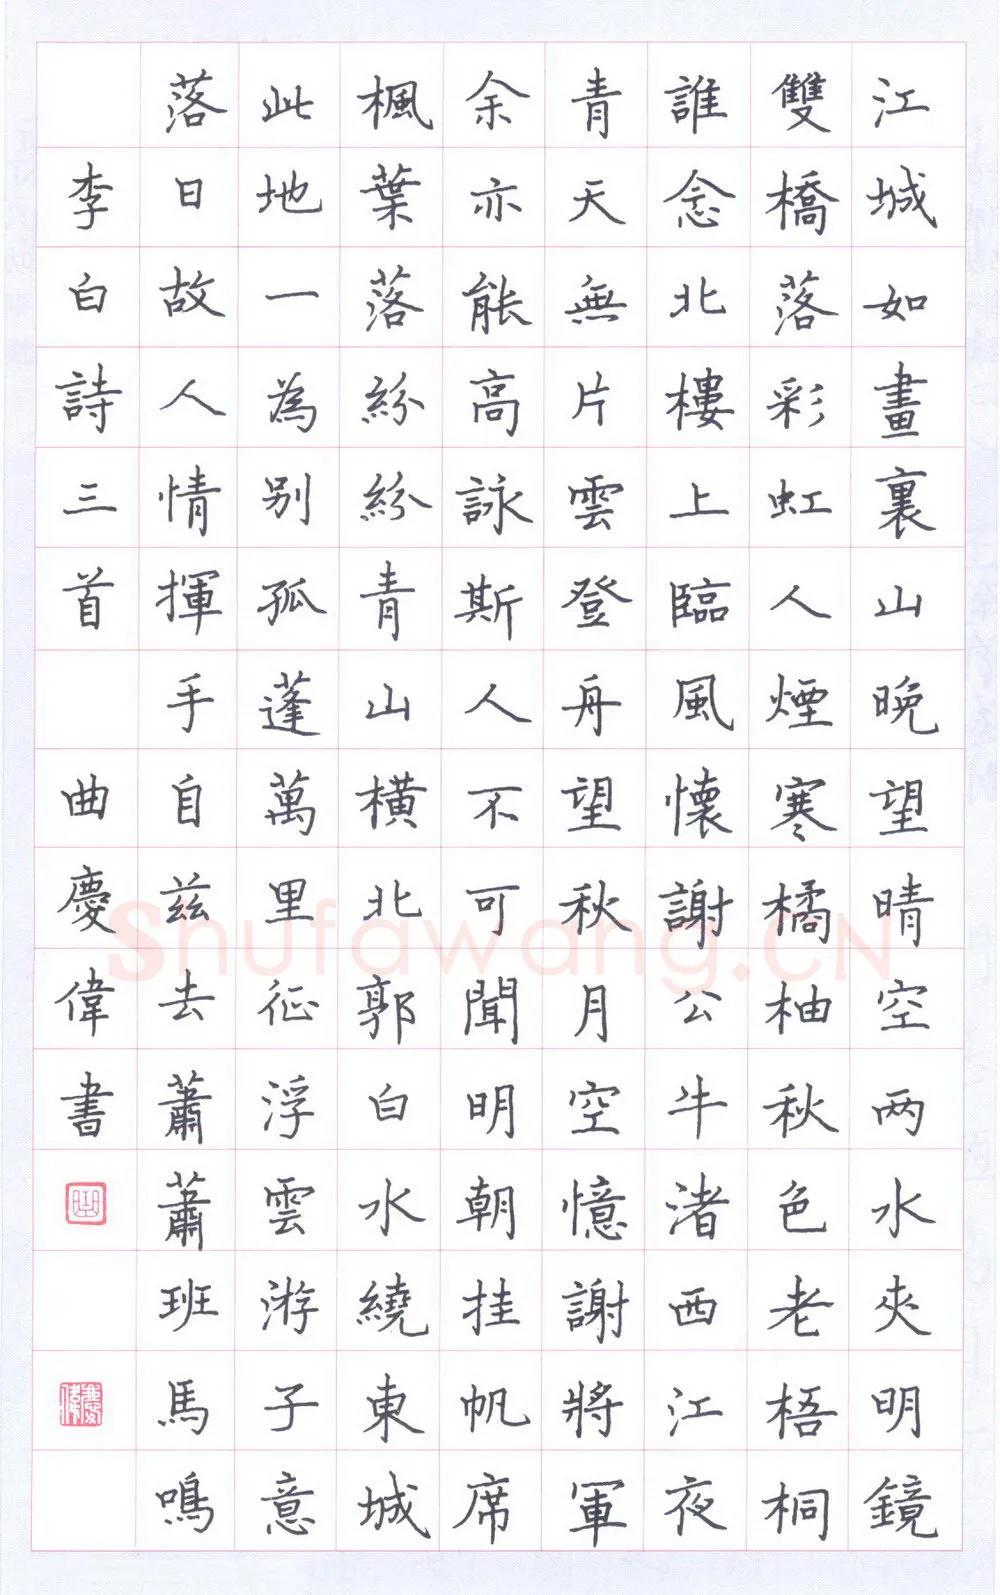 江城如畫裏山晚望晴空两水夾明鏡
雙橋落彩虹人煙寒橘柚秋色老梧桐
誰念北樓上臨風懷謝公牛渚西江夜
青天無片雲登舟望秋月空憶謝將軍
余亦能高詠斯人不可聞明朝挂帆席
楓葉落紛紛青山橫北郭白水繞東城
此地一為别孤蓬萬里征浮雲游子意
落日故人情揮手自兹去蕭蕭班馬鳴
李白詩三首 曲慶偉書
曲
慶偉
Shufawang.CN